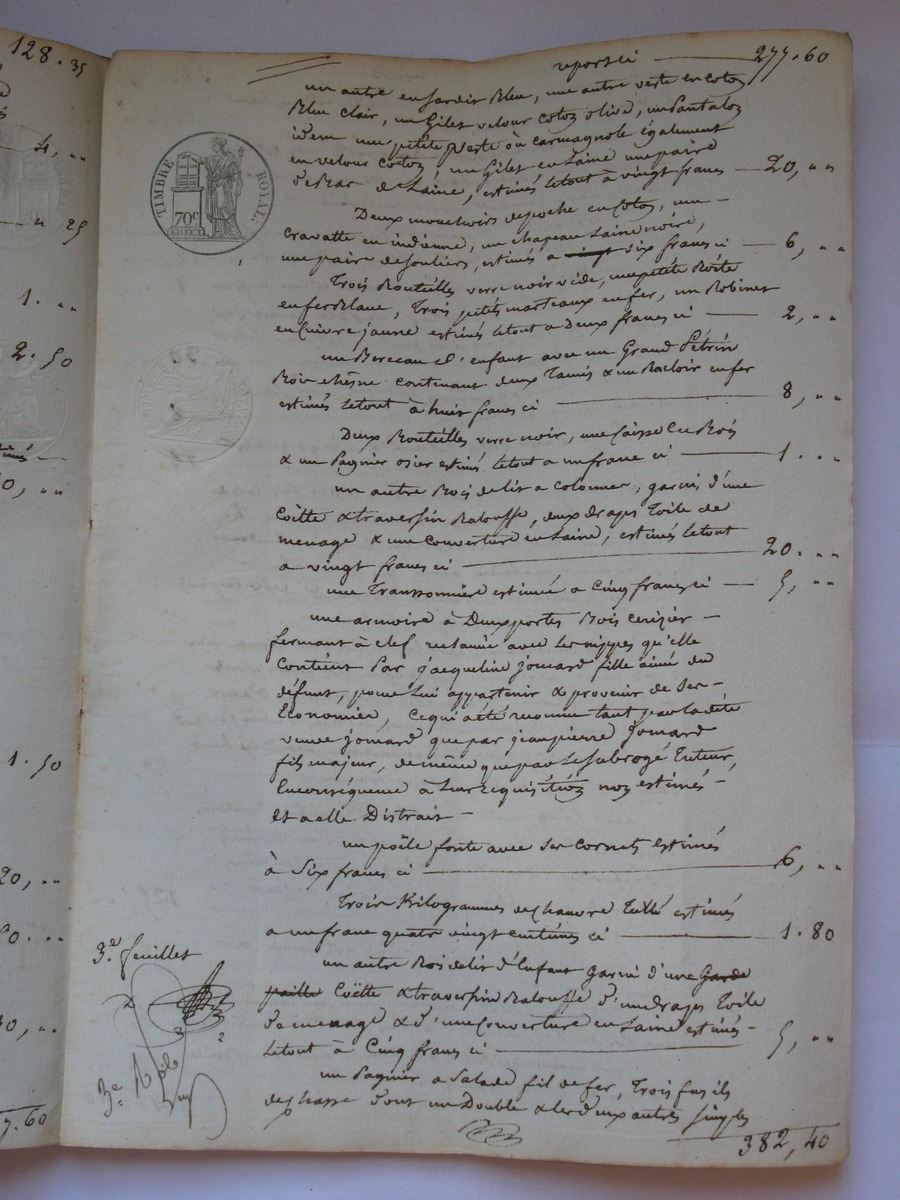 128.35
4, ""
" 25
1. ""
2. 50
0, ""
1. 50
20, ""
30, ""
7.60
reporté 277.60
un autre en sardis Bleu, une autre veste en coton
Bleu clair, un Gilet velour coton olive, un Pantalon
idem une petite veste ou carmagnole également
en velour coton, un Gilet en Laine une paire
de Bas de Laine, estimés letout à vingt francs 20, ""
Deux mouchoirs depoche en coton, une
cravatte en indienne, un chapeau Laine noire,
une paire de souliers, estimés a vingt six francs ci 6, ""
Trois Bouteilles verre noir vide, une petite Boëte
en ferblanc, Trois petits marteaux en fer, un Robinet
en Cuivre jaune estimés letout a Deux francs ci 2, ""
un Berceau d'enfant avec un Grand Pétrin
Bois chêsne contenant deux Tamis & un Racloir en fer
estimés letout à huit francs ci 8, ""
Deux Bouteilles verre noir, une Caisse en Bois
& un Pagnier osier estimés letout a un franc ci 1. ""
un autre Bois de lit a colonnes, garni d'une
Coëtte & traversin Balouffe, deux draps Toile de
menage & une couverture en Laine, estimés letout
a vingt francs ci 20. ""
une Transonnière estimée a Cinq francs ci 5, ""
une armoire à Deux portes Bois cerizier
fermant à clef reclamée avec les nippes qu'elle
Contient par jacqueline jomard fille ainée du
défunt, pour Lui appartenir & provenir de ses
Economies, cequi a été reconnu tant par ladite
veuve jomard que par jeanpierre jomard
fils majeur, de même que par Le subrogé Tuteur,
Enconséquence à Leur requisition non estimés
Et a elle Distrait
un poële fonte avec ses cornets estimés
à Six francs ci 6, ""
Trois Kilogrammes de chanvre Tillé estimés
a un franc quatre vingt centimes ci 1.80
un autre Bois de lit d'Enfant garni d'une Garde
paille Coëtte & traversin Balouffe d'un draps Toile
de menage & d'une Couverture en Laine estimés
letout à Cinq francs ci 5, ""
un Pagnier a Salade fil de fer, Trois fusils
de chasse dont un Double & les deux autres simples
382,40
TIMBRE ROYAL
70c
3.e feuillet
3e Rôle